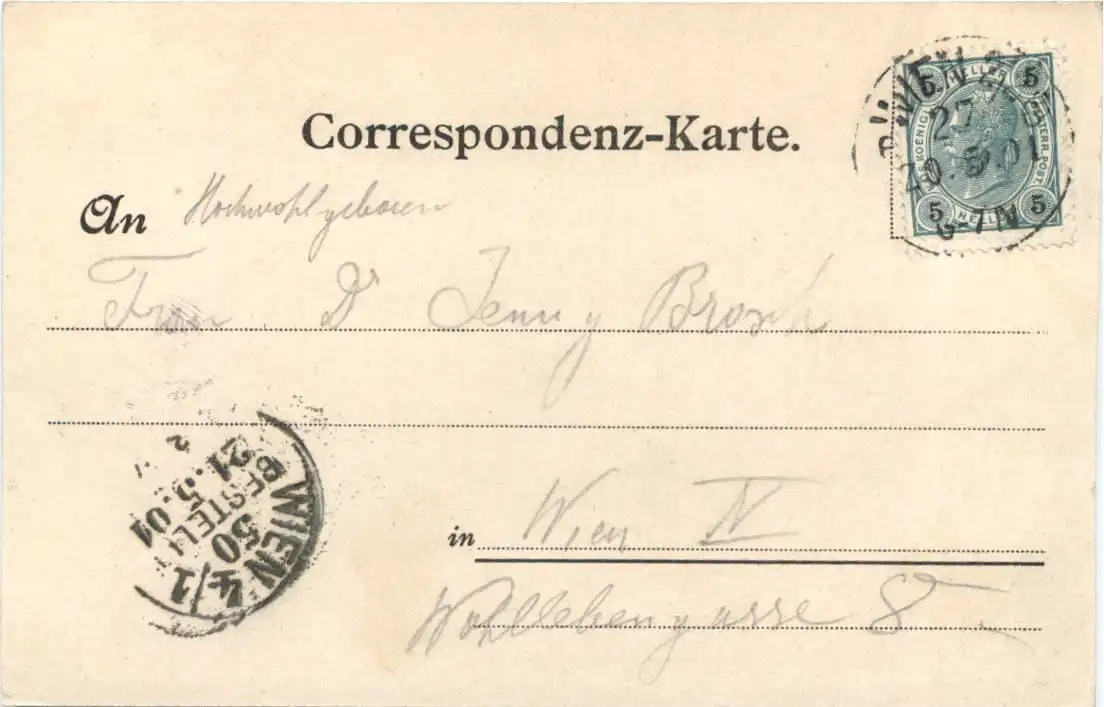 Correspondenz-Karte.
An Hochwohlgeboren
Frau Dr Jenny
in Wien IV
Wohllebengasse 8
5 HELLER 5
5 HELLER 5
20.5.01
WIEN 4/1
50
BESTELLT
21.5.01